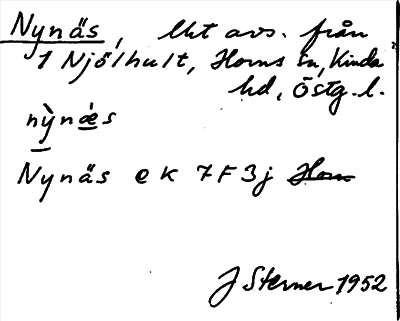 Nynäs, lht avs. från
1 Njölhult, Horns sn, Kinda
hd, Östg. l.
nỳnǽs
Nynäs e K 7F3j Horn
J Sterner 1952